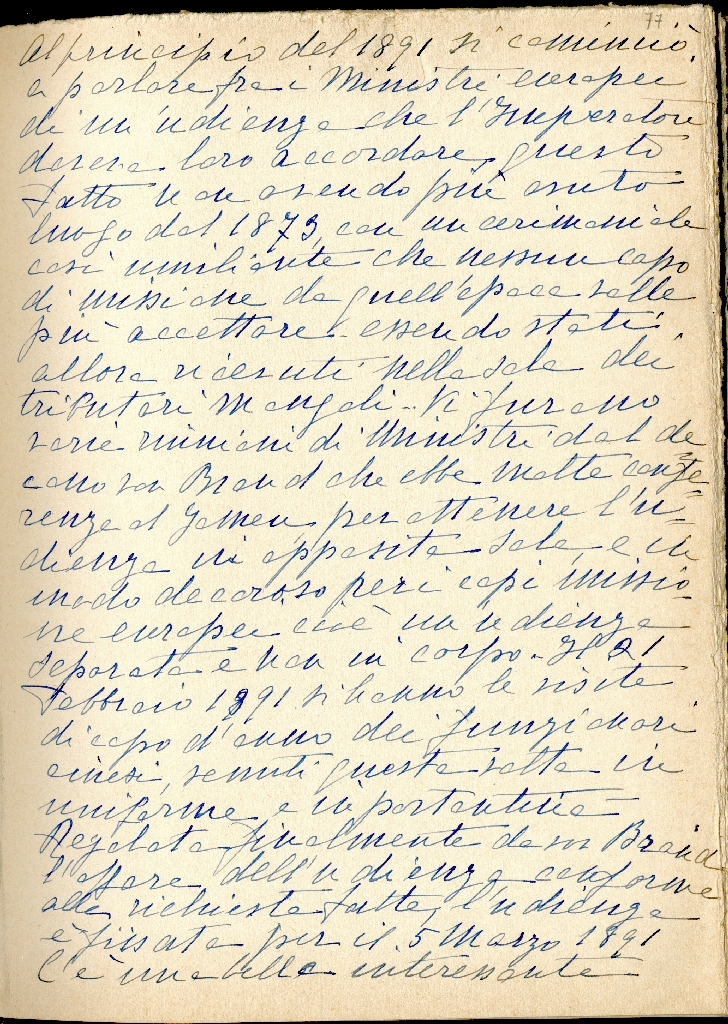 77
Al principio del 1891 si cominciò
a parlare fra i Ministri europei
di un'udienza che l'Imperatore
doveva loro accordare, questo
fatto non avendo più avuto
luogo dal 1873, con un cerimoniale
così umiliante che nessun capo
di missione da quell'epoca volle
più accettare essendo stati
allora ricevuti nella sala dei
tributari Mongoli.. Vi furono
varie riunioni di Ministri dal de
cano von Brand che ebbe molte confe=
renze al Yamen per ottenere l'u=
dienza in apposita sala, e in
modo decoroso per i capi missio=
ne europei cioè un'udienza
separata e non in corpo. Il 21
Febbraio 1891 si hanno le visite
di capo d'anno dei funzionari
cinesi, venuti questa volta in
uniforme e in portantina
Regolata finalmente da von Brand
l'affare dell'udienza conforme
alla richiesta fatta, l'udienza
è fissata per il 5 Marzo 1891
C'è una bella interessante